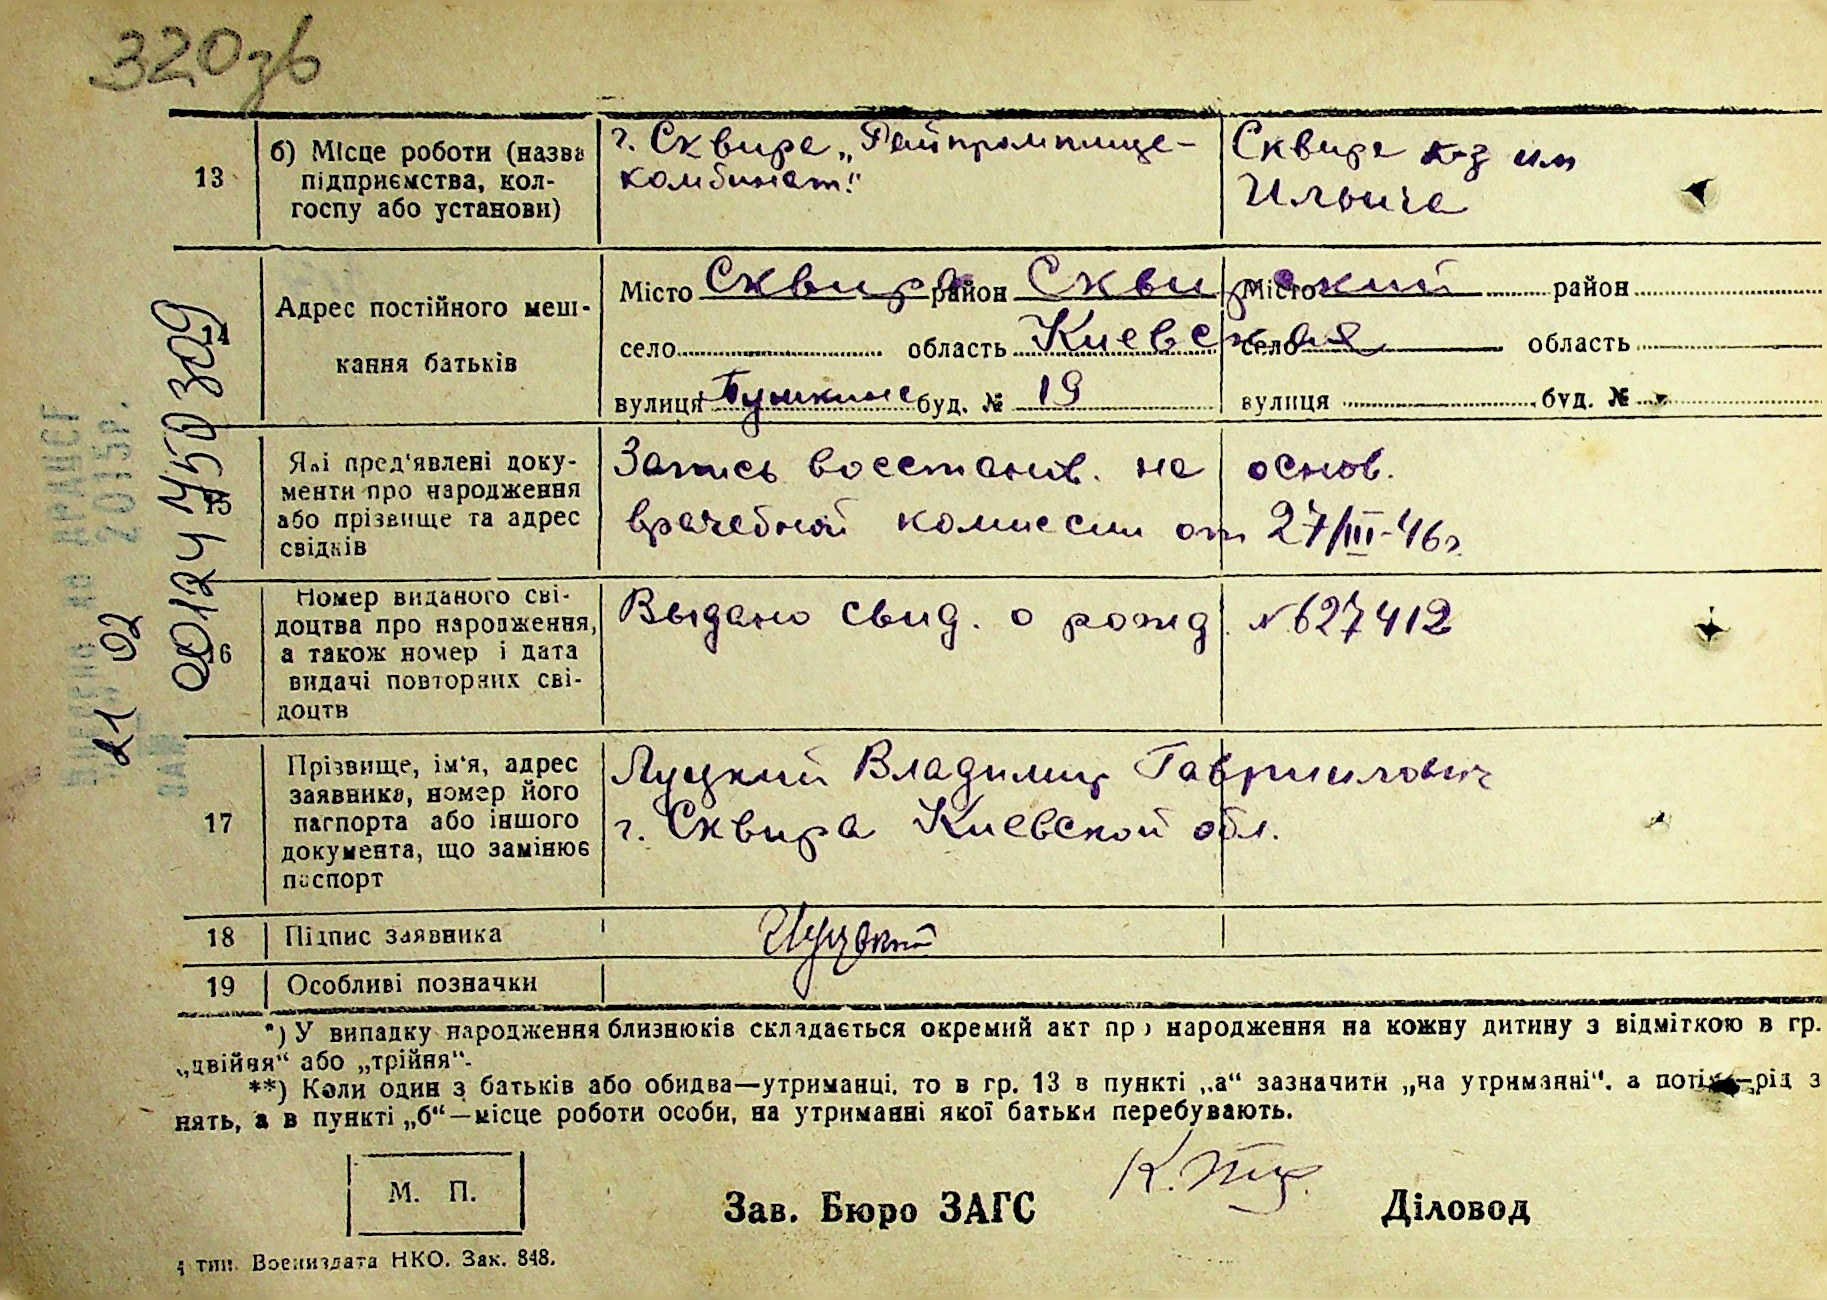 320зв
13
б) Місце роботи (назва
підприємства, кол-
госпу або установи)
г. Сквира „Райпромпище-
комбинат."
Сквира к-з им
Ильича
14
Адрес постійного меш-
кання батьків
Місто Сквира район Сквирский
село область Киевская
вулиця Пушкина буд. № 19
Місто район
село область
вулиця буд. №
15
Які пред'явлені доку-
менти про народження
або прізвище та адрес
свідків
Запись восстанов. на основ.
врачебной комиссии от 27/III-46г.
16
Номер виданого сві-
доцтва про народження,
а також номер і дата
видачі повторних сві-
доцтв
Выдано свид. о рожд. № 627412
17
Прізвище, ім'я, адрес
заявника, номер його
паспорта або іншого
документа, що замінює
паспорт
Луцкий Владимир Гавриилович
г. Сквира Киевской обл.
18
Підпис заявника
Луцкий
19
Особливі позначки
*) У випадку народження близнюків складається окремий акт про народження на кожну дитину з відміткою в гр.
„двійня" або „трійня".
**) Коли один з батьків або обидва—утриманці, то в гр. 13 в пункті „а" зазначити „на утриманні", а потім—рід з
нять, а в пункті „б"—місце роботи особи, на утриманні якої батьки перебувають.
М. П.
Зав. Бюро ЗАГС
Діловод
тип. Воениздата НКО. Зак. 848.
00124450309
21 02
2015р.